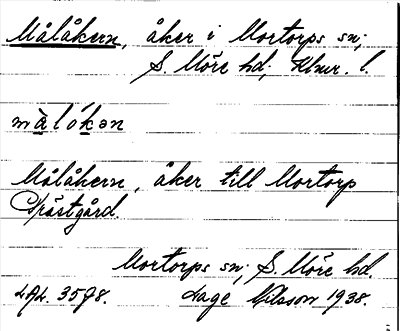 Målåkern, åker i Mortorps sn;
S. Möre hd, Klmr. l.
målókən
Målåkern, åker till Mortorp
Prästgård.
Mortorps sn; S. Möre hd.
Lage Nilsson 1938.